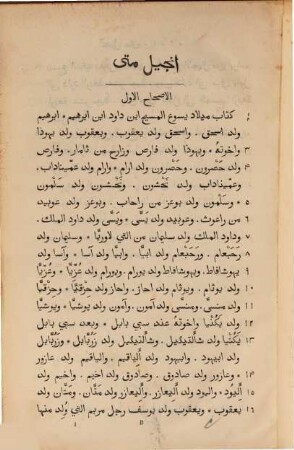 انجيل متى
الاصحاح الاول
١ كتاب ميلاد يسوع المسيح ابن داود ابن ابرهيم * ابرهيم
٢ ولد اسحق. واسحق ولد يعقوب. ويعقوب ولد يهوذا
٣ واخوته * ويهوذا ولد فارص وزارح من ثامار. وفارص
ولد حصرون. وحصرون ولد ارام * وارام ولد عمّيناداب.
وعمّيناداب ولد نحشون. ونحشون ولد سلمون
٥ وسلمون ولد بوعز من راحاب. وبوعز ولد عوبيد
من راعوث. وعوبيد ولد يسّى * ويسّى ولد داود الملك.
وداود الملك ولد سليمان من التي لاوريّا * وسليمان ولد
رحبعام. ورحبعام ولد ابيّا. وابيّا ولد آسا * وآسا ولد
يهوشافاط. ويهوشافاط ولد يورام. ويورام ولد عُزّيّا * وعُزّيّا
ولد يوثام. ويوثام ولد احاز. واحاز ولد حزقيّا * وحزقيّا
١٠ ولد منسّى. ومنسّى ولد آمون. وآمون ولد يوشيّا * ويوشيّا
١٢ ولد يكُنْيا واخوته عند سبي بابل * وبعد سبي بابل
١٣ يكُنْيا ولد شالتيئيل. وشالتيئيل ولد زرُبّابل * وزرُبّابل
ولد ابيهود. وابيهود ولد الياقيم. والياقيم ولد عازور
* وعازور ولد صادوق. وصادوق ولد اخيم. واخيم ولد
١٥ اليُود * واليُود ولد اليعازر. واليعازر ولد متّان. ومتّان ولد
١٦ يعقوب * ويعقوب ولد يوسف رجل مريم التي وُلد منها
1 B